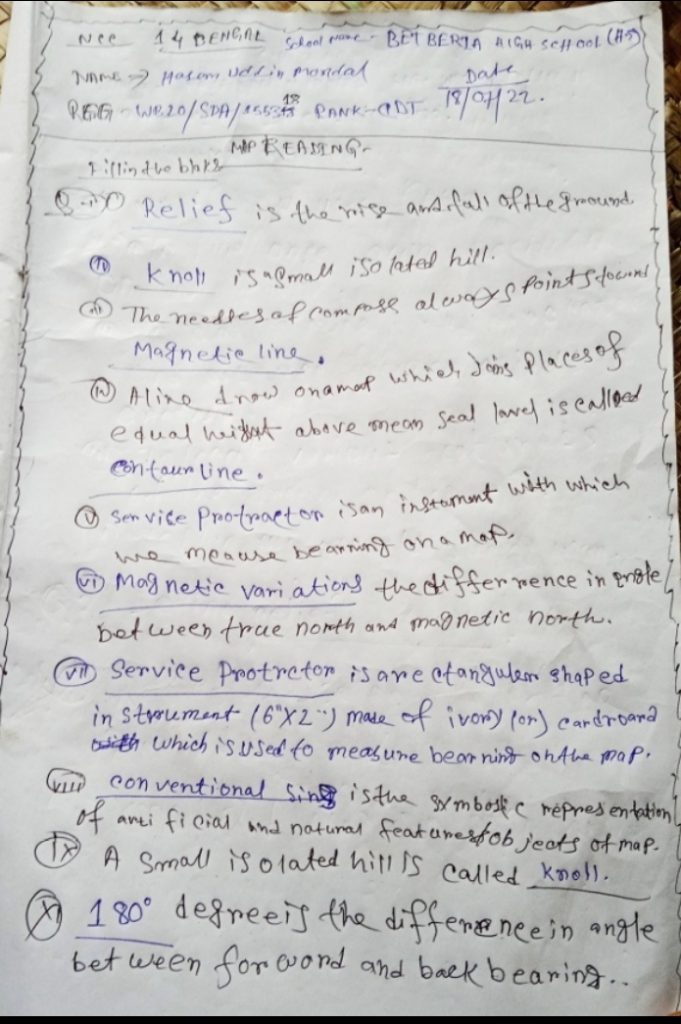 NCC 14 BENGAL School Name - BETBERIA HIGH SCHOOL (H.S)
NAME → Hasam Uddin mondal Date
REGG - WB20/SDA/ RANK - CDT 18/07/22.
MAP READING-
Fill in the blnks
Relief is the rise and fall of the ground.
(ii) Knoll is a small isolated hill.
(iii) The needles of compase always points towards
Magnetic line.
(iv) A line drow on a map which Joins places of
equal height above mean seal lavel is called
Contaur line.
(v) Service Protractor is an instrument with which
we meause bearning on a map.
(vi) Magnetic variations the differrence in angle
between true north and magnetic north.
(vii) Service Protrctor is a rectangular shaped
in strument (6"X2") made of ivory (or) cardroard
which is used to measure bearning on the map.
(viii) conventional Sing is the symbolic representation
of arti ficial and natural features/objects of map.
(ix) A small isolated hill is called Knoll.
(x) 180° degree is the difference in angle
between forword and back bearing..